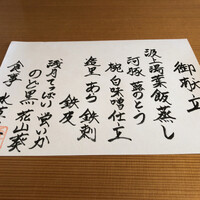 御献立
汲上湯葉飯蒸し
河豚 蕗のとう
椀 白味噌仕立
造里 あら 鉄刺
鉄皮
浅月てっぱい 蛍いか
のど黒 花山葵
食事